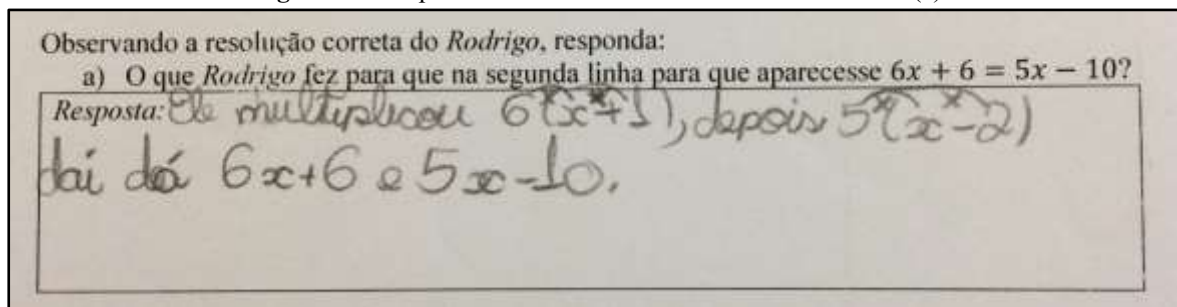 Observando a resolução correta do Rodrigo, responda:
a) O que Rodrigo fez para que na segunda linha para que aparecesse 6x + 6 = 5x − 10?
Resposta: Ele multiplicou 6(x+1), depois 5(x-2)
daí dá 6x+6 e 5x-10.